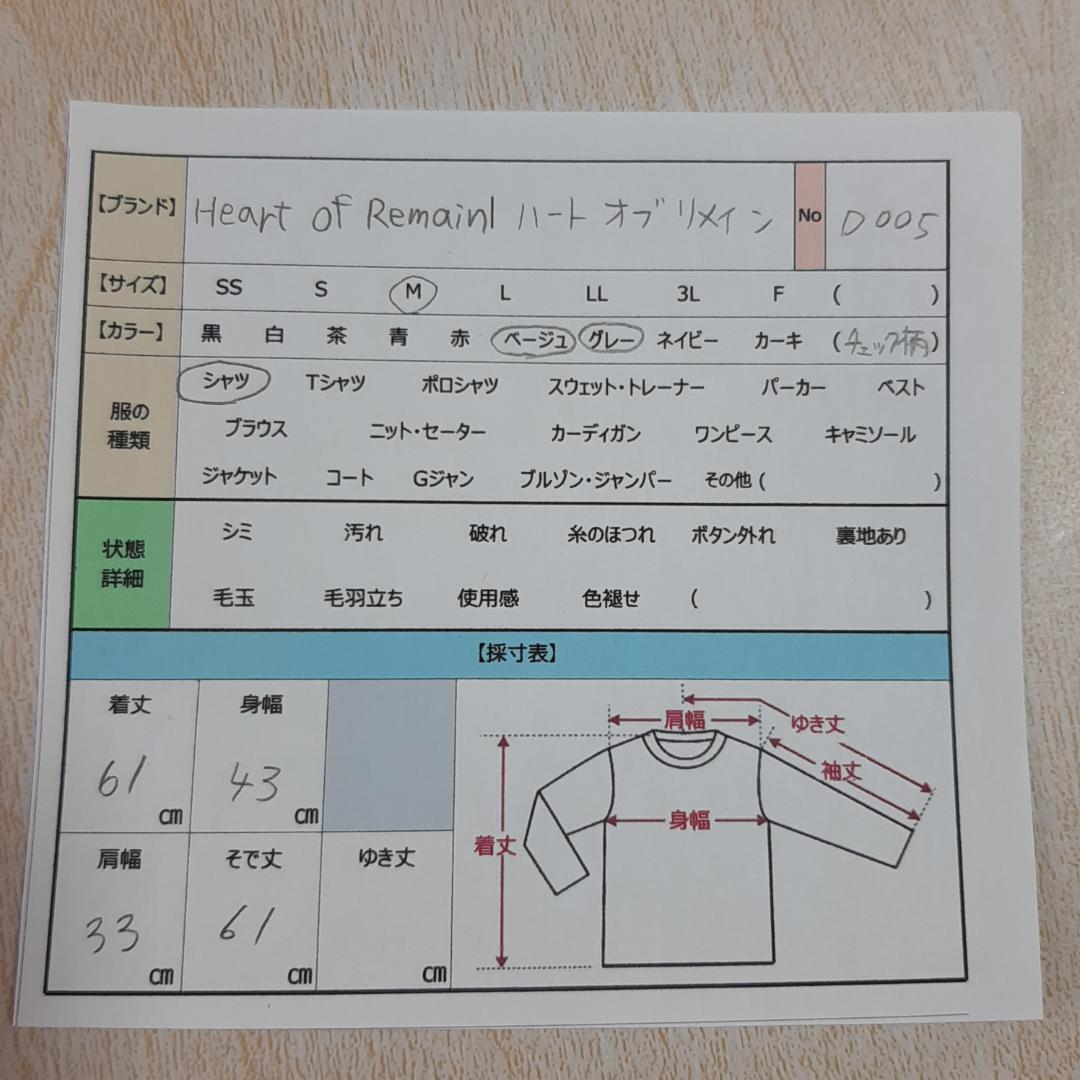 【ブランド】 Heart of Remainl ハート オブ リメイン No D005
【サイズ】 SS S M L LL 3L F ( )
【カラー】 黒 白 茶 青 赤 ベージュ グレー ネイビー カーキ (チェック柄)
服の種類
シャツ Tシャツ ポロシャツ スウェット・トレーナー パーカー ベスト
ブラウス ニット・セーター カーディガン ワンピース キャミソール
ジャケット コート Gジャン ブルゾン・ジャンパー その他 ( )
状態詳細
シミ 汚れ 破れ 糸のほつれ ボタン外れ 裏地あり
毛玉 毛羽立ち 使用感 色褪せ ( )
【採寸表】
着丈 身幅
61 cm 43 cm
肩幅 そで丈 ゆき丈
33 cm 61 cm cm
肩幅 ゆき丈
袖丈
身幅
着丈